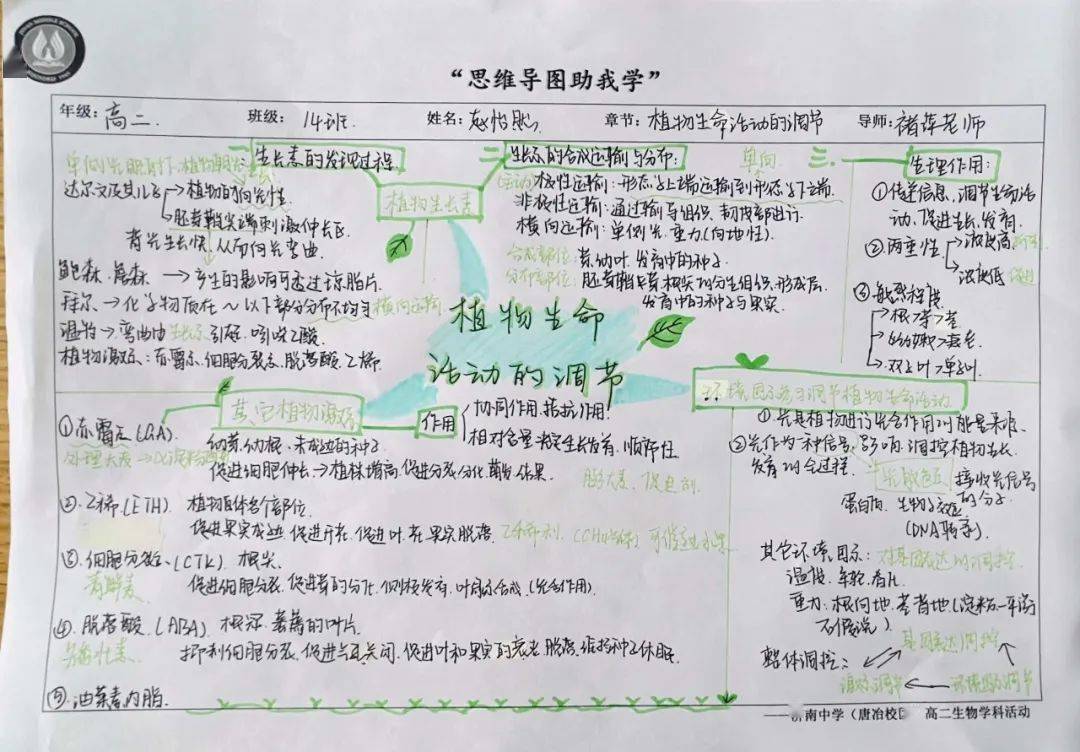 “思维导图助我学”
年级：高二． 班级： 14班． 姓名：赵怡 章节：植物生命活动的调节 导师：褚萍老师
一 生长素的发现过程
单侧光照射，植物朝光生长
达尔文及其儿子 → 植物的向光性
→ 胚芽鞘尖端刺激伸长区
背光生长快，从而向光弯曲．
鲍森·詹森 → 产生的影响可透过琼脂片
拜尔 → 化学物质在～以下部分分布不均匀 横向运输
温特 → 弯曲由生长素引起．吲哚乙酸
植物激素：赤霉素．细胞分裂素．脱落酸．乙烯
植物生长素
二 生长素的合成运输与分布：
(运动) 极性运输：形态学上端运输到形态学下端． 单向
非极性运输：通过输导组织．韧皮部进行
横向运输：单侧光．重力(向地性)．
合成部位：芽．幼叶．发育中的种子
分布部位：胚芽鞘．芽．根尖的分生组织．形成层．
发育中的种子与果实
三． 生理作用：
①传递信息．调节生命活
动．促进生长．发育．
②两重性 → 浓度高 抑制
→ 浓度低 促进
③敏感程度
→ 根>芽>茎
→ 幼嫩>衰老
→ 双子叶>单子叶
植物生命
活动的调节
其它植物激素
作用 协同作用．拮抗作用！
相对含量决定生长发育．顺序性
①赤霉素(GA)． 幼芽．幼根．未成熟的种子
促进细胞伸长→植株增高．促进分裂．分化．萌发．结果
②．乙烯．(ETH) 植物体各个部位
促进果实成熟．促进开花．促进叶．花．果实脱落．乙烯利
③．细胞分裂素．(CTK) 根尖
青鲜素 促进细胞分裂．促进芽的分化．侧枝发育．叶绿素合成．(光合作用)
④．脱落酸．(ABA)． 根冠．萎蔫的叶片
抑制细胞分裂．促进气孔关闭．促进叶和果实的衰老．脱落．维持种子休眠．
⑤．油菜素内酯．
环境因素参与调节植物生命活动
①光是植物进行光合作用的能量来源．
②光作为一种信号．影响．调控植物生长．
发育的全过程． 光敏色素 接收光信号
的分子
蛋白质．生物学效应
(DNA转录)
其它环境因素：对基因表达的调控
温度．年轮．春化
重力：根向地．茎背地(淀粉—平衡
石假说)
整体调控： 基因表达调控
激素调节 ← 环境因素调节
——济南中学（唐冶校区 高二生物学科活动